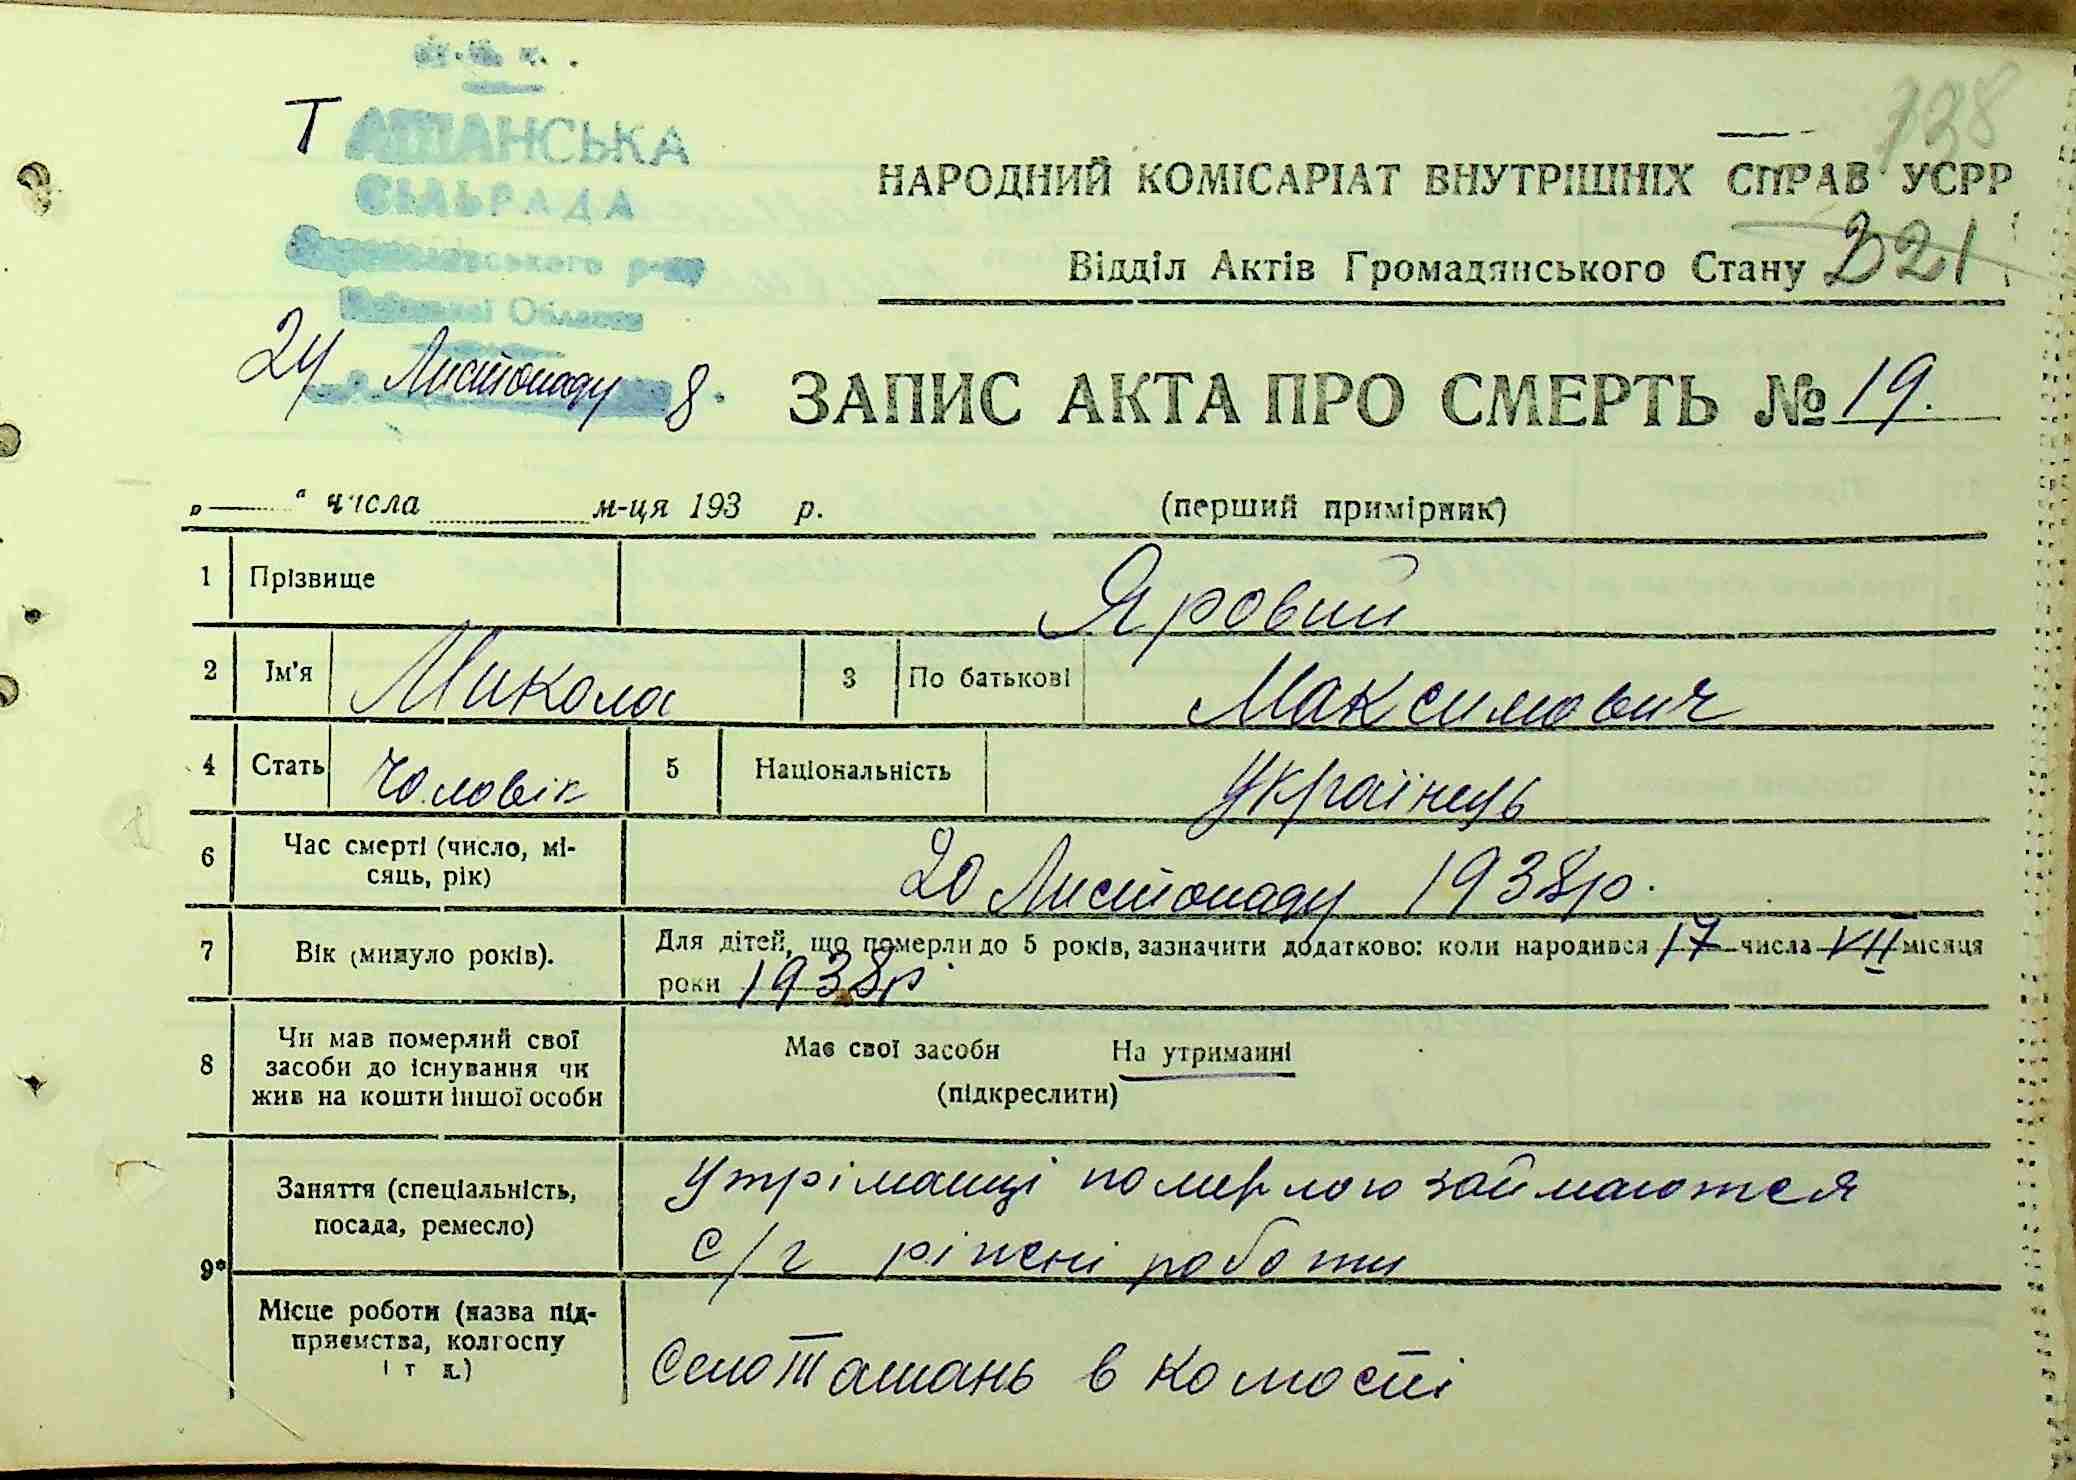 738
Т АШАНСЬКА
СІЛЬРАДА
р-ну
Області
НАРОДНИЙ КОМІСАРІАТ ВНУТРІШНІХ СПРАВ УСРР
Відділ Актів Громадянського Стану 221
24 Листопаду 8.
ЗАПИС АКТА ПРО СМЕРТЬ № 19.
„ “ числа м-ця 193 р. (перший примірник)
1 Прізвище Яровий
2 Ім'я Микола 3 По батькові Максимович
4 Стать Чоловік 5 Національність Українець
6 Час смерті (число, мі-
сяць, рік) 20 Листопаду 1938р.
7 Вік (минуло років). Для дітей, що померли до 5 років, зазначити додатково: коли народився 17 числа VII місяця
роки 1938р.
8 Чи мав померлий свої
засоби до існування чи
жив на кошти іншої особи
Має свої засоби На утриманні
(підкреслити)
9* Заняття (спеціальність,
посада, ремесло)
Утріманці померлого займаются
с/г ріжні роботи
Місце роботи (назва під-
приємства, колгоспу
і т д.)
Село Ташань в комості